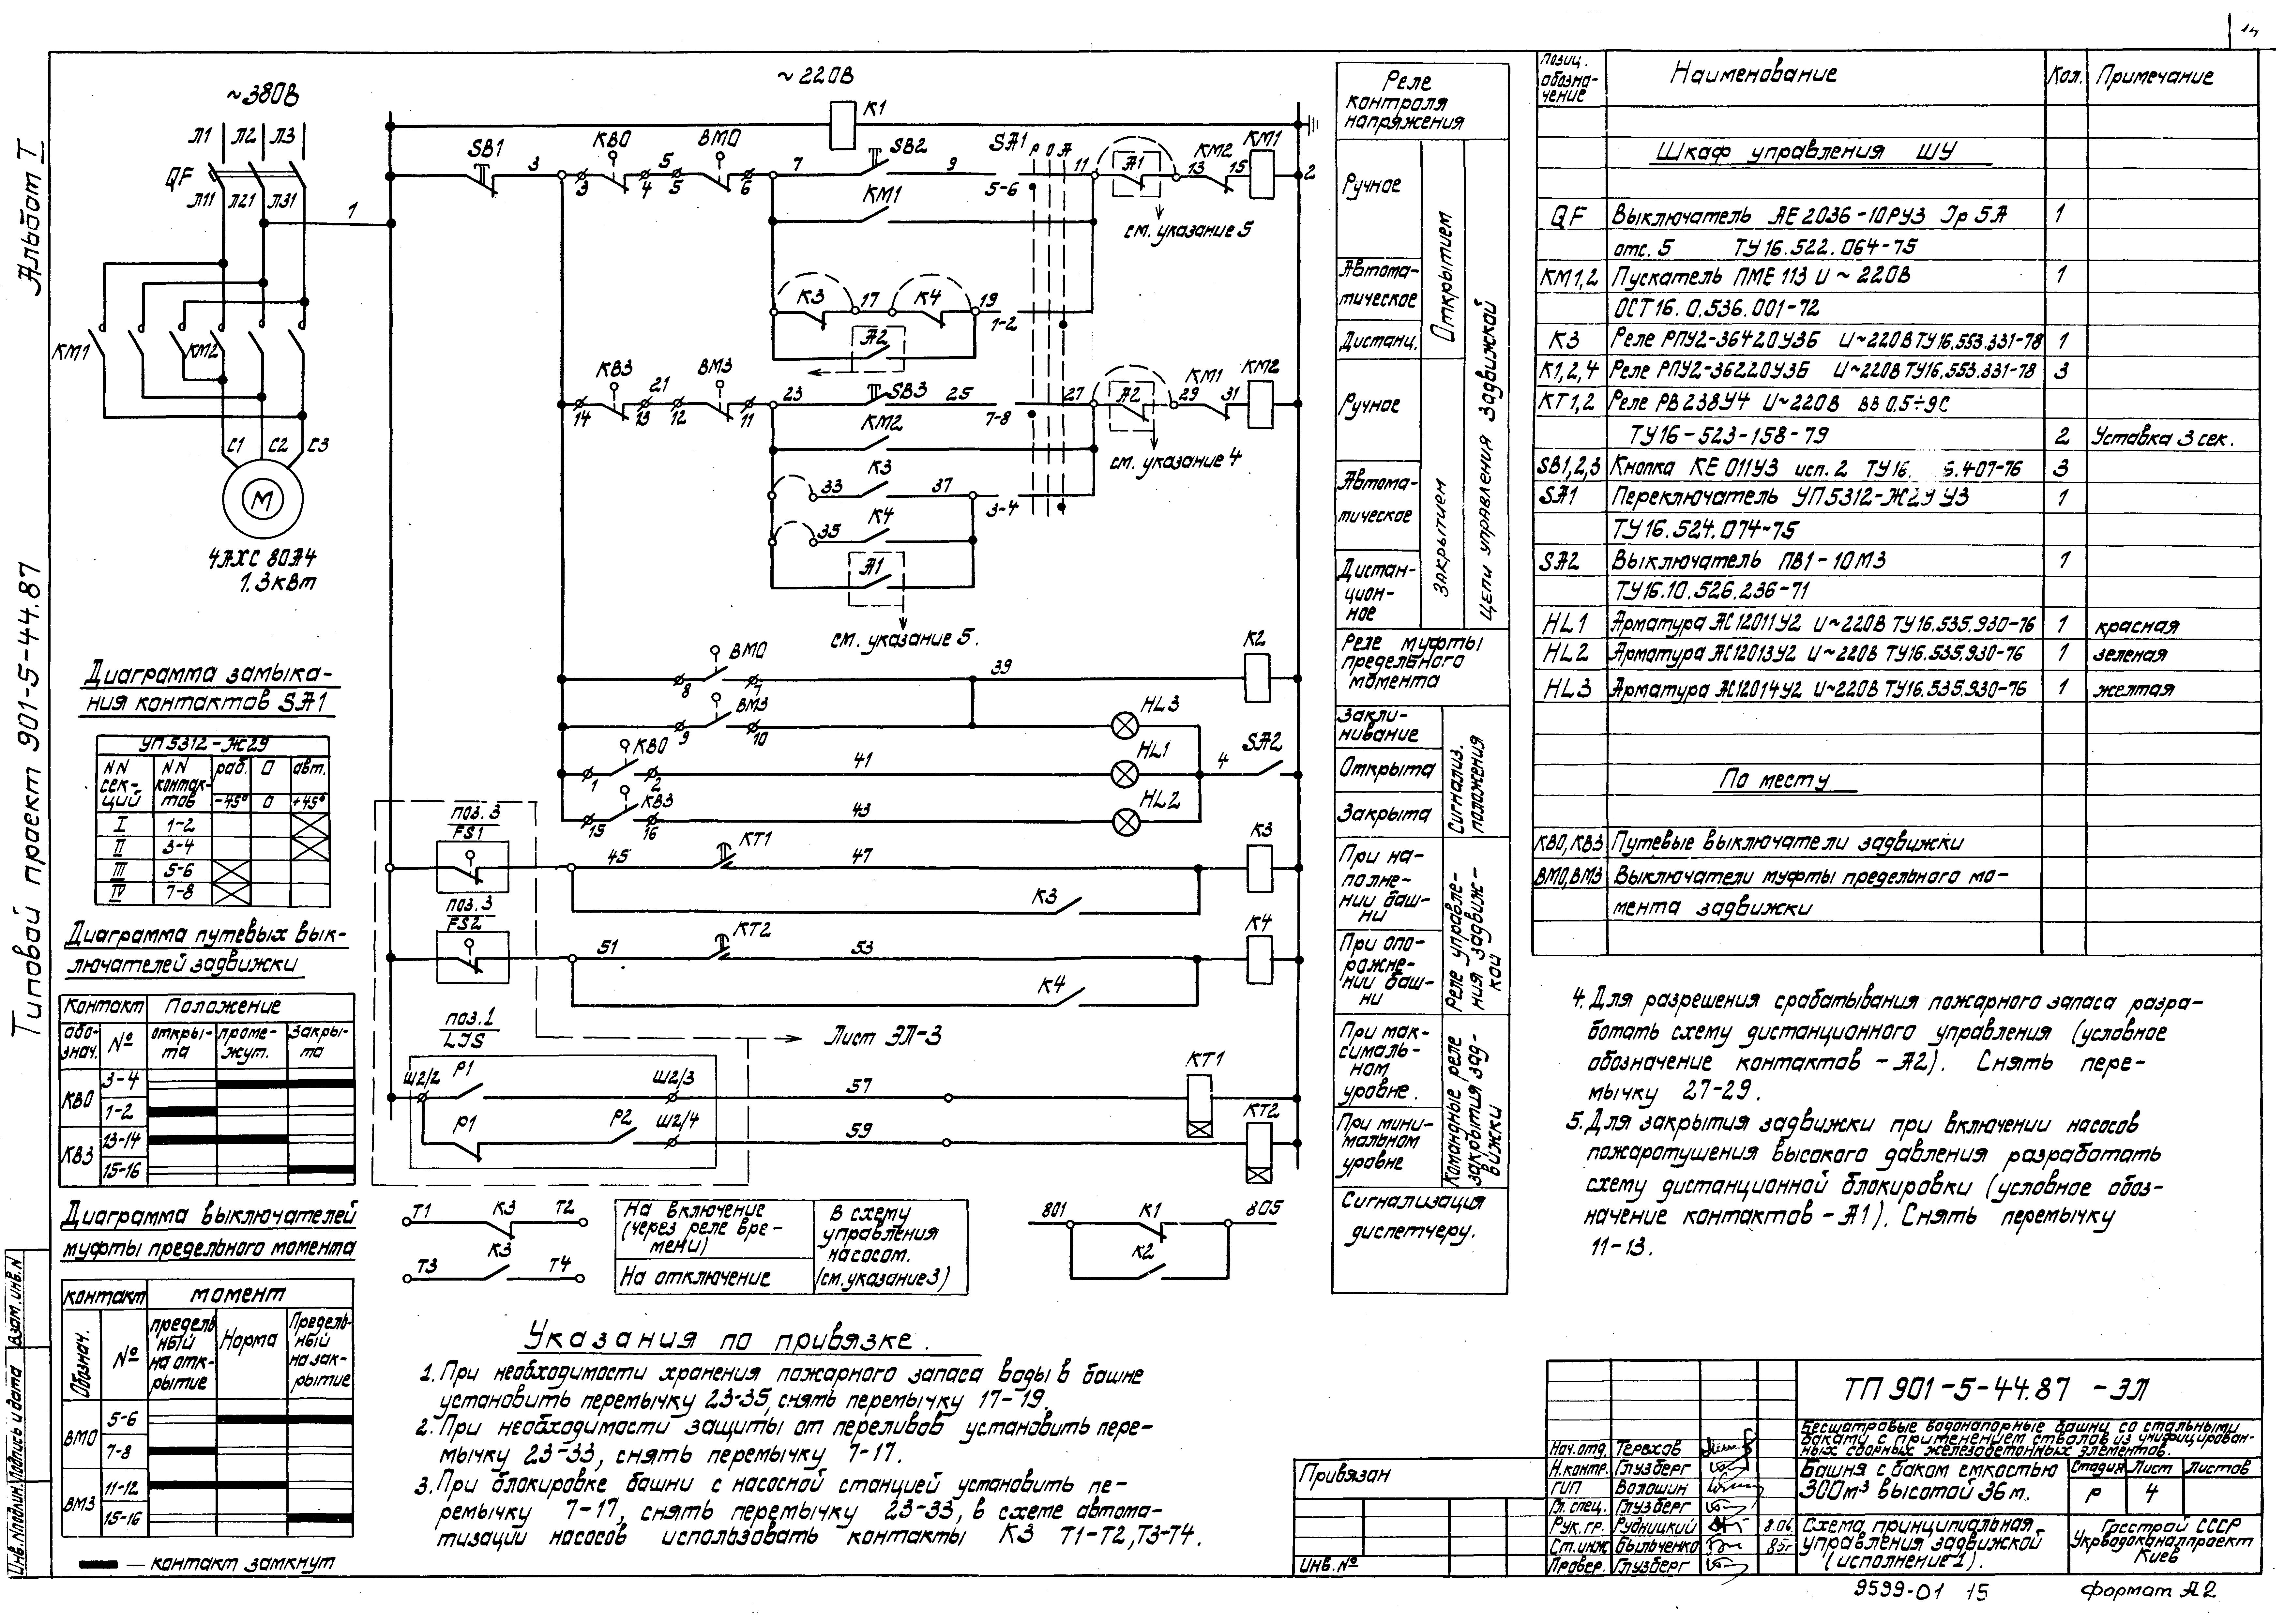 14
Альбом I
Типовой проект 901-5-44.87
~380В
Л1 Л2 Л3
QF
Л11 Л21 Л31
1
КМ1
КМ2
С1 С2 С3
М
4АХС 80А4
1.3кВт
~220В
К1
SB1 3 КВО 5 ВМО 7 SB2 9 SA1 Р О А 11 А1 КМ2 КМ1
3 4 5 6 5-6 13 15 2
КМ1
см. указание 5
К3 17 К4 19
1-2
А2
КВ3 21 ВМ3 23 SB3 25 27 А2 КМ1 КМ2
14 13 12 11 7-8 29 31
КМ2
см. указание 4
К3
33 37
3-4
К4
35
А1
см. указание 5.
ВМО 39 К2
8 7
ВМ3 HL3
9 10
КВО 41 HL1 4 SA2
1 2
КВ3 43 HL2
15 16
поз.3
FS1
45 КТ1 47 К3
К3
поз.3
FS2
51 КТ2 53 К4
К4
поз.1
LJS
Лист ЭЛ-3
Ш2/2 Р1 Ш2/3 57 КТ1
Р1 Р2 Ш2/4 59 КТ2
Т1 К3 Т2
Т3 К3 Т4
На включение
(через реле вре-
мени)
На отключение
В схему
управления
насосом.
(см.указание 3)
801 К1 805
К2
Реле
контроля
напряжения
Ручное
Автома-
тическое
Дистанц.
Открытием
Ручное
Автома-
тическое
Дистан-
цион-
ное
Закрытием
Цепи управления задвижкой
Реле муфты
предельного
момента
Закли-
нивание
Открыта
Закрыта
Сигнализ.
положения
При на-
полне-
нии баш-
ни
При опо-
рожне-
нии баш-
ни
Реле управле-
ния задвиж-
кой
При мак-
сималь-
ном
уровне.
При мини-
мальном
уровне
Командные реле
закрытия зад-
вижки
Сигнализация
диспетчеру.
Диаграмма замыка-
ния контактов SA1
УП 5312-Ж29
NN сек-ций NN контак-тов раб. 0 авт.
-45° 0 +45°
I 1-2
II 3-4
III 5-6
IV 7-8
Диаграмма путевых вык-
лючателей задвижки
Контакт Положение
обо-знач. № откры-та проме-жут. закры-та
КВО 3-4
1-2
КВ3 13-14
15-16
Диаграмма выключателей
муфты предельного момента
контакт момент
Обознач. № предельный на открытие Норма Предель-ный на зак-рытие
ВМО 5-6
7-8
ВМ3 11-12
15-16
— контакт замкнут
Указания по привязке.
1. При необходимости хранения пожарного запаса воды в башне
установить перемычку 23-35, снять перемычку 17-19.
2. При необходимости защиты от переливов установить пере-
мычку 23-33, снять перемычку 7-17.
3. При блокировке башни с насосной станцией установить пе-
ремычку 7-17, снять перемычку 23-33, в схеме автома-
тизации насосов использовать контакты К3 Т1-Т2, Т3-Т4.
позиц. обозна-чение Наименование Кол. Примечание
Шкаф управления ШУ
QF Выключатель АЕ2036-10РУ3 Jр 5А 1
отс. 5 ТУ16.522.064-75
КМ1,2 Пускатель ПМЕ 113 U ~ 220В 1
ОСТ16.0.536.001-72
К3 Реле РПУ2-36420У3Б U~220В ТУ16.553.331-78 1
К1,2,4 Реле РПУ2-36220У3Б U~220В ТУ16.553.331-78 3
КТ1,2 Реле РВ238У4 U~220В ВВ 0.5÷9С
ТУ16-523-158-79 2 Уставка 3 сек.
SB1,2,3 Кнопка КЕ 011У3 исп. 2 ТУ16. 6.407-76 3
SA1 Переключатель УП5312-Ж29 У3 1
ТУ16.524.074-75
SA2 Выключатель ПВ1-10М3 1
ТУ16.10.526.236-71
HL1 Арматура АС12011У2 U~220В ТУ16.535.930-76 1 красная
HL2 Арматура АС12013У2 U~220В ТУ16.535.930-76 1 зеленая
HL3 Арматура АС12014У2 U~220В ТУ16.535.930-76 1 желтая
По месту
КВО,КВ3 Путевые выключатели задвижки
ВМО,ВМ3 Выключатели муфты предельного мо-
мента задвижки
4. Для разрешения срабатывания пожарного запаса разра-
ботать схему дистанционного управления (условное
обозначение контактов - А2). Снять пере-
мычку 27-29.
5. Для закрытия задвижки при включении насосов
пожаротушения высокого давления разработать
схему дистанционной блокировки (условное обоз-
начение контактов - А1). Снять перемычку
11-13.
Инв.Nподлин. Подпись и дата Взам.инв.N
Привязан
Инв.№
ТП 901-5-44.87 -ЭЛ
Бесшатровые водонапорные башни со стальными
баками с применением стволов из унифицирован-
ных сборных железобетонных элементов.
Нач.отд. Терехов
Н.контр. Глузберг
ГИП Волошин
Гл.спец. Глузберг
Рук.гр. Рудницкий 8.06
Ст.инж Быльченко 85г
Провер. Глузберг
Башня с баком емкостью
300м³ высотой 36м.
Стадия Лист Листов
Р 4
Схема принципиальная
управления задвижкой
(исполнение 1).
Госстрой СССР
Укрводоканалпроект
Киев
9599-01 15
Формат А2